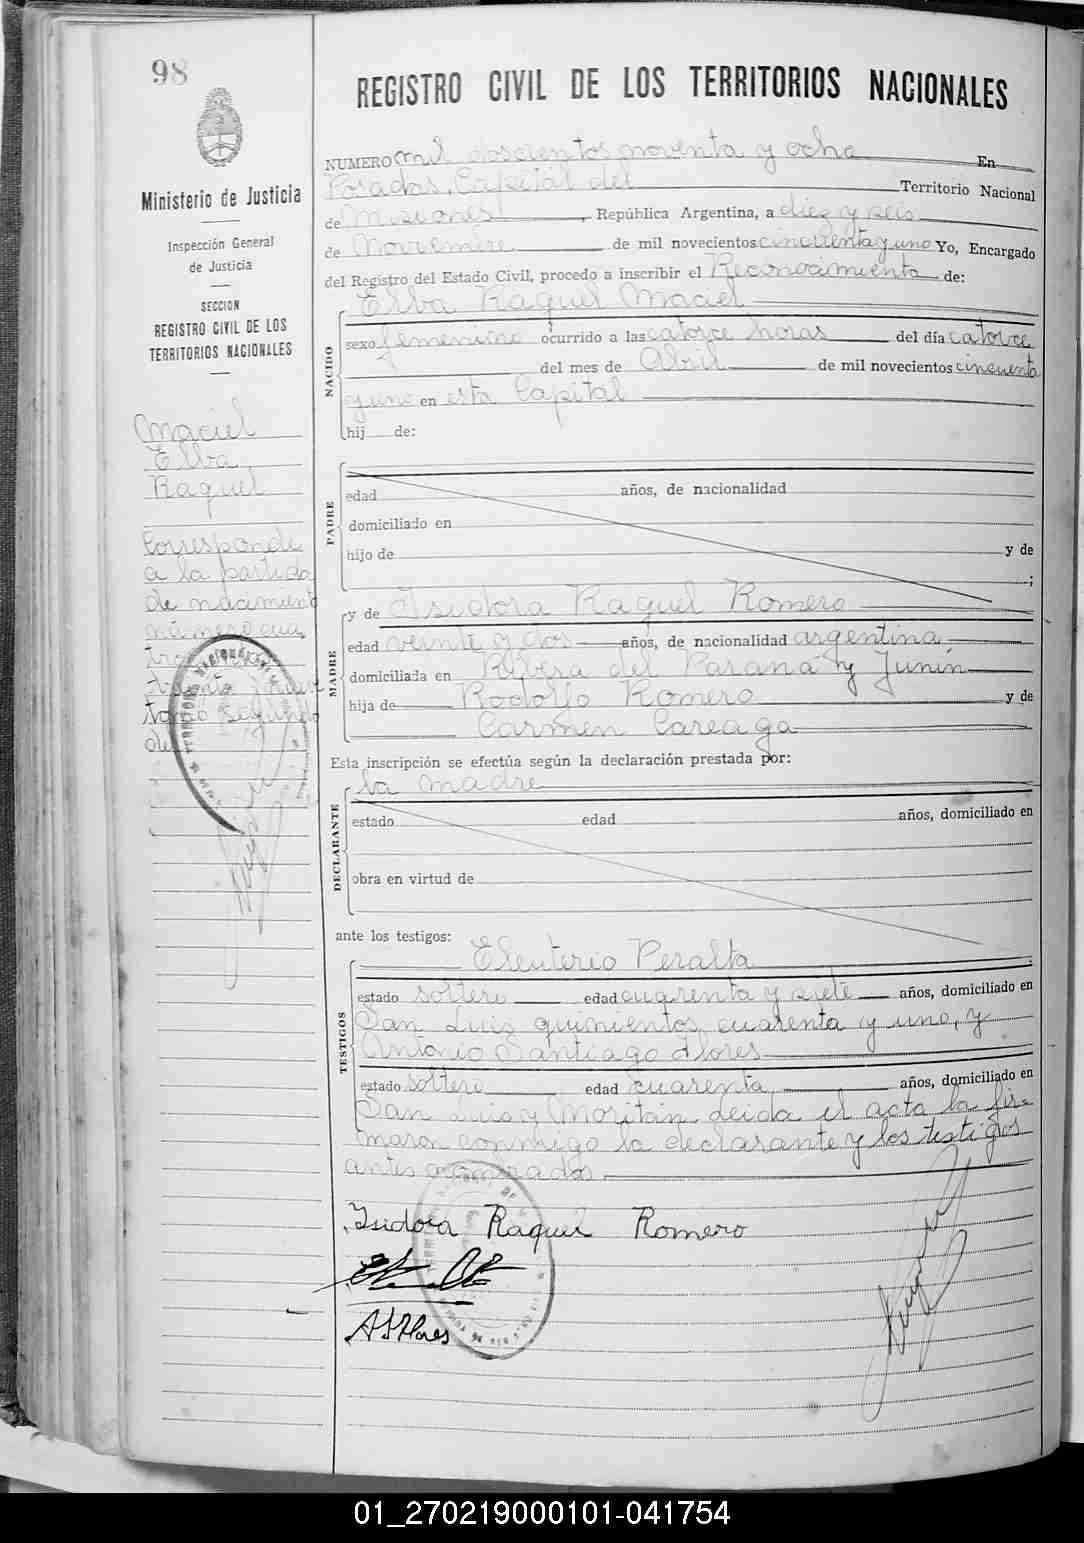 98
Ministerio de Justicia
Inspección General
de Justicia
SECCION
REGISTRO CIVIL DE LOS
TERRITORIOS NACIONALES
Maciel
Elba
Raquel
Corresponde
a la partida
de nacimiento
número cua
tro
treinta y
tomo segundo
de
REGISTRO CIVIL DE LOS TERRITORIOS NACIONALES
NUMERO mil doscientos noventa y ocho En
Posadas, Capital del Territorio Nacional
de Misiones, República Argentina, a diez y seis
de Noviembre de mil novecientos cincuenta y uno Yo, Encargado
del Registro del Estado Civil, procedo a inscribir el Reconocimiento de:
Elba Raquel Maciel
NACIDO
sexo femenino ocurrido a las catorce horas del día catorce
del mes de Abril de mil novecientos cincuenta
y uno en esta Capital
hij de:
PADRE
edad años, de nacionalidad
domiciliado en
hijo de y de
;
y de Isidora Raquel Romero
MADRE
edad veinte y dos años, de nacionalidad argentina
domiciliada en Ribera del Paraná y Junín
hija de Rodolfo Romero y de
Carmen Careaga
Esta inscripción se efectúa según la declaración prestada por:
la madre
DECLARANTE
estado edad años, domiciliado en
obra en virtud de
ante los testigos:
Eleuterio Peralta
TESTIGOS
estado soltero edad cuarenta y siete años, domiciliado en
San Luis quinientos cuarenta y uno, y
Antonio Santiago Flores
estado soltero edad cuarenta años, domiciliado en
San Luis y Moritán. Leida el acta la fir-
maron conmigo la declarante y los testigos
antes nombrados.
Isidora Raquel Romero
A S Flores
01_270219000101-041754